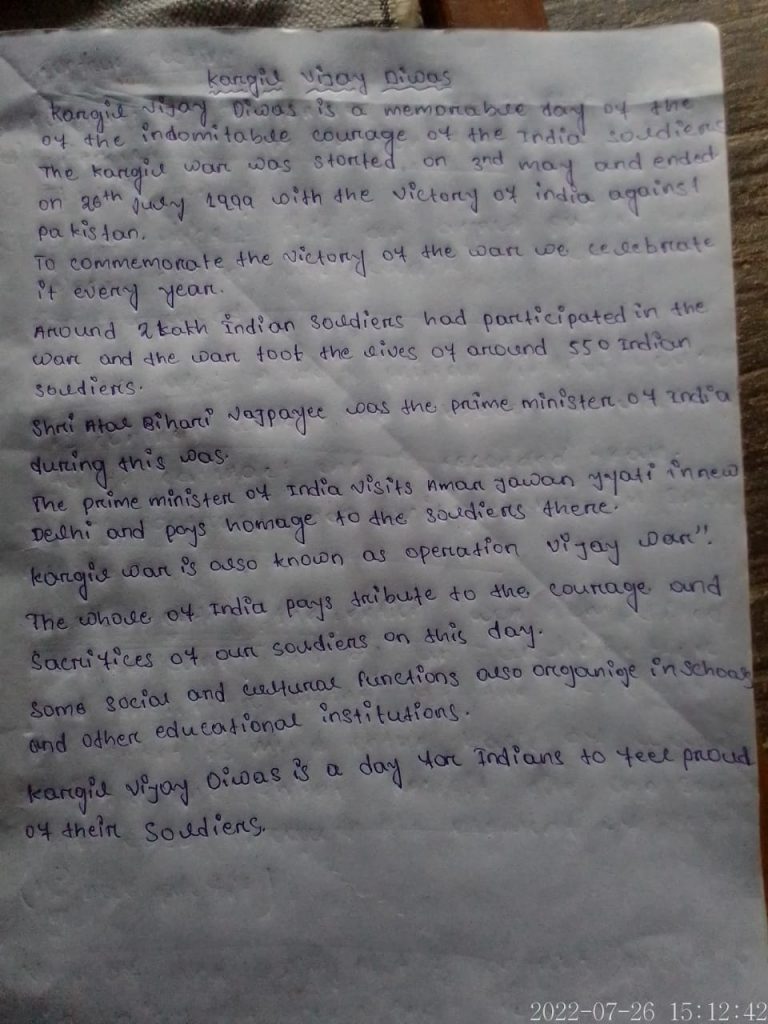 Kargil Vijay Diwas
Kargil Vijay Diwas is a memorable day of the
of the indomitable courage of the India soldiers
The Kargil war was started on 3rd may and ended
on 26th July 1999 with the victory of india against
pakistan.
To commemorate the victory of the war we celebrate
it every year.
Around 2 lakh indian soldiers had participated in the
war and the war took the lives of around 550 Indian
soldiers.
Shri Atal Bihari Vajpayee was the prime minister of India
during this was.
The prime minister of India visits Amar Jawan jyoti in new
Delhi and pays homage to the soldiers there.
Kargil war is also known as operation vijay war".
The whole of India pays tribute to the courage and
Sacrifices of our soldiers on this day.
Some social and cultural functions also organige in schools
and other educational institutions.
Kargil Vijay Diwas is a day for Indians to feel proud
of their Soldiers.
2022-07-26 15:12:42